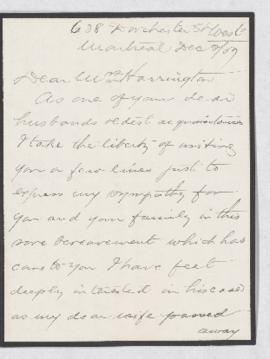 638 Dorchester St West
Montreal Dec 2/07
Dear Mrs Harrington
As one of your dear
husbands oldest acquaintances
I take the liberty of writing
you a few lines just to
express my sympathy for
you and your family in this
sore bereavement which has
come to you I have felt
deeply interested in his case
as my dear wife passed
away